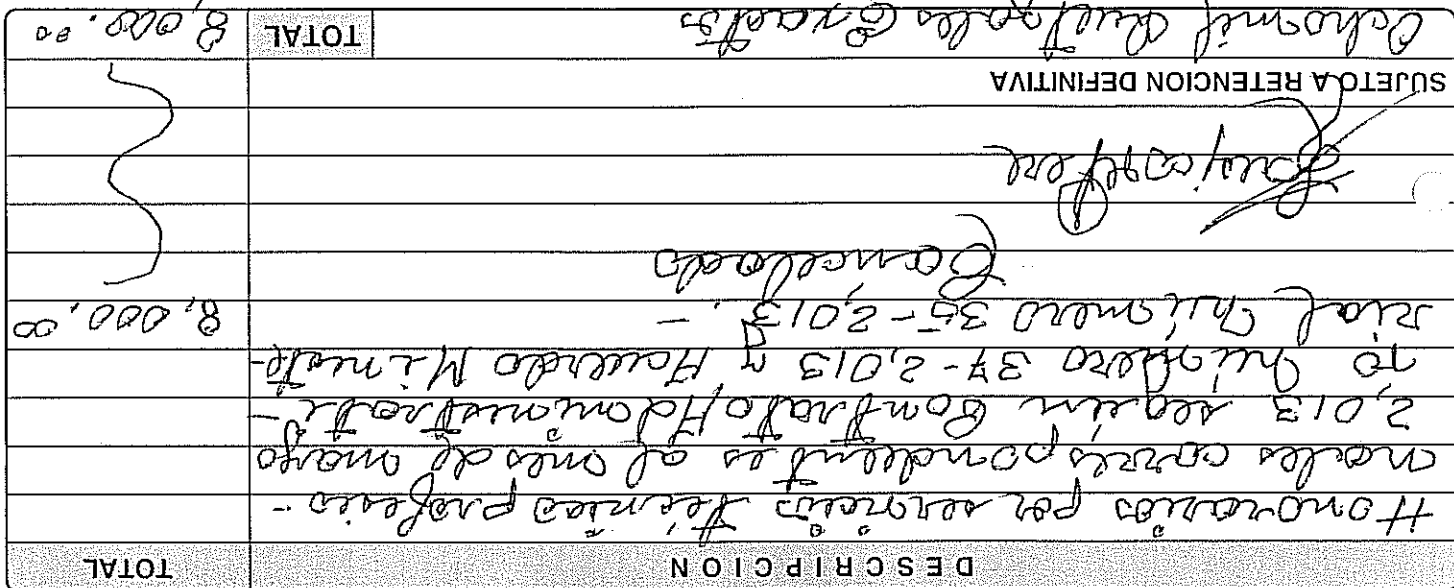 DESCRIPCION TOTAL
Honorarios por servicios técnicos profesio-
nales correspondientes al mes de mayo
2,013 según Contrato Administrati-
vo Número 34-2,013 y Acuerdo Ministe-
rial Número 35-2,013.- 8,000.00
Cancelado
SUJETO A RETENCION DEFINITIVA
Ocho mil Quetzales Exactos TOTAL 8,000.00